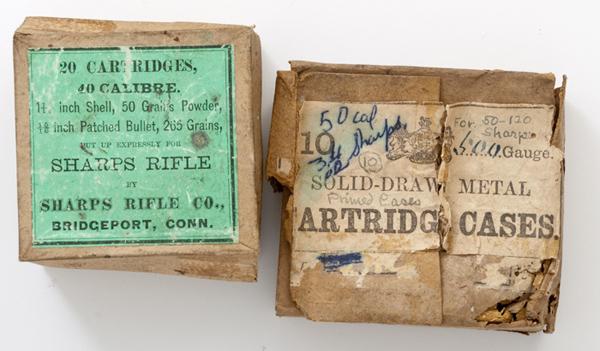 20 CARTRIDGES,
40 CALIBRE.
inch Shell, 50 Grains Powder,
inch Patched Bullet, 265 Grains,
PUT UP EXPRESSLY FOR
SHARPS RIFLE
BY
SHARPS RIFLE CO.,
BRIDGEPORT, CONN.
50 cal
Sharps
10
10
For 50-120
Sharps
500 Gauge.
SOLID-DRAW METAL
Primed Cases
ARTRIDG CASES.